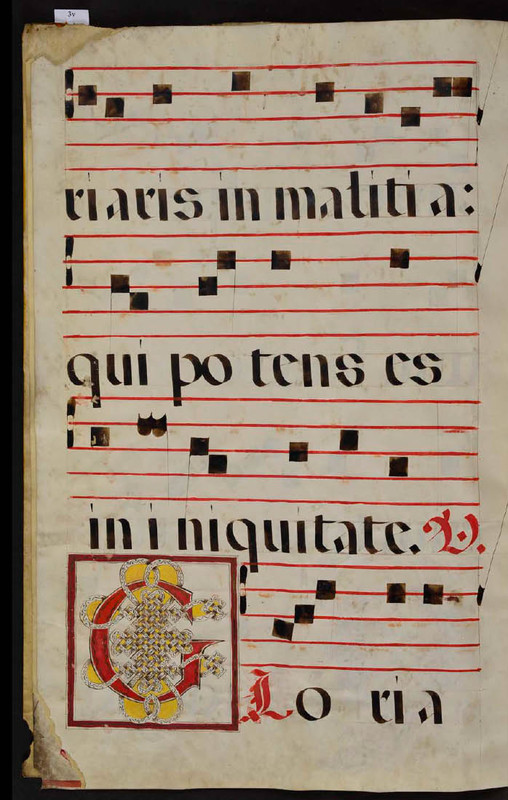 3v
riaris in malitia:
qui po tens es
in i niquitate. V.
GLo ria